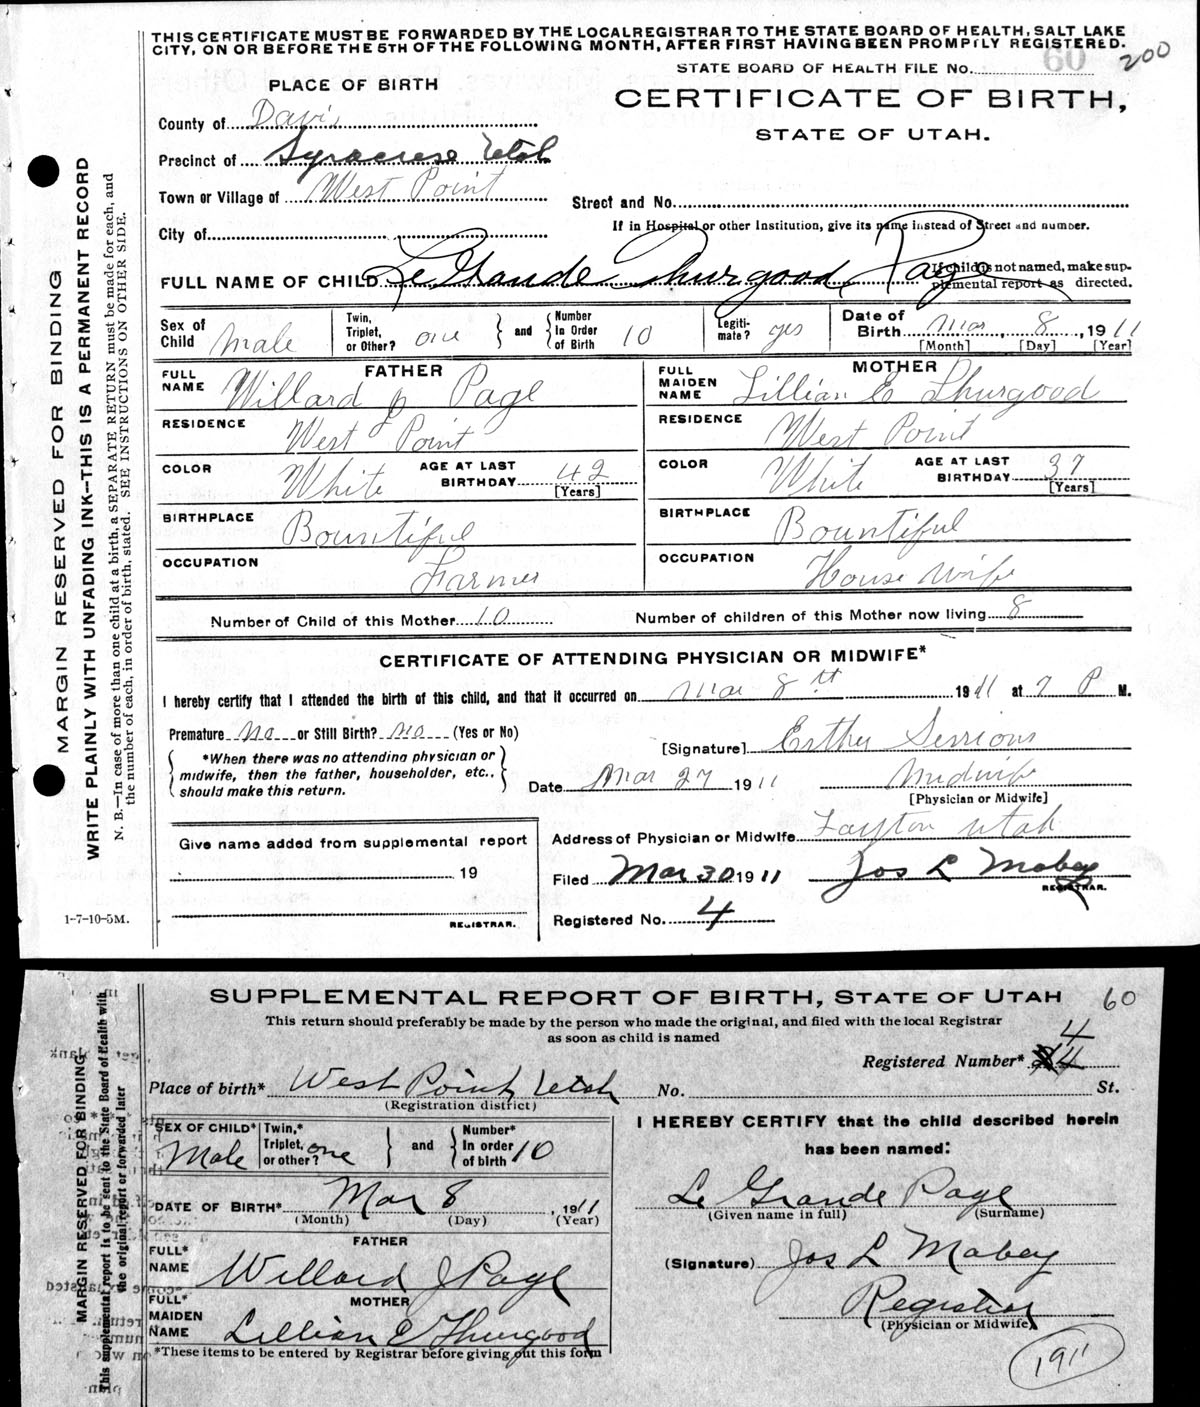 THIS CERTIFICATE MUST BE FORWARDED BY THE LOCAL REGISTRAR TO THE STATE BOARD OF HEALTH, SALT LAKE
CITY, ON OR BEFORE THE 5TH OF THE FOLLOWING MONTH, AFTER FIRST HAVING BEEN PROMPTLY REGISTERED.
STATE BOARD OF HEALTH FILE No. 60 200
PLACE OF BIRTH
CERTIFICATE OF BIRTH,
STATE OF UTAH.
County of Davis
Precinct of Syracuse Utah
Town or Village of West Point
Street and No.
City of
If in Hospital or other Institution, give its name instead of Street and number.
FULL NAME OF CHILD Le Grande Thurgood Page
If child is not named, make supplemental report as directed.
Sex of Child Male
Twin, Triplet, or Other? one and Number In Order of Birth 10
Legitimate? yes
Date of Birth Mar 8, 1911
[Month] [Day] [Year]
FATHER
FULL NAME Willard J Page
RESIDENCE West Point
COLOR White AGE AT LAST BIRTHDAY 42 [Years]
BIRTHPLACE Bountiful
OCCUPATION Farmer
MOTHER
FULL MAIDEN NAME Lillian E Thurgood
RESIDENCE West Point
COLOR White AGE AT LAST BIRTHDAY 37 [Years]
BIRTHPLACE Bountiful
OCCUPATION House wife
Number of Child of this Mother 10 Number of children of this Mother now living 8
CERTIFICATE OF ATTENDING PHYSICIAN OR MIDWIFE*
I hereby certify that I attended the birth of this child, and that it occurred on Mar 8th 1911 at 7 P M.
Premature no or Still Birth? no (Yes or No)
*When there was no attending physician or
midwife, then the father, householder, etc.,
should make this return.
[Signature] Esther Sessions
Date Mar 27 1911
Midwife
[Physician or Midwife]
Address of Physician or Midwife Layton Utah
Give name added from supplemental report
19
REGISTRAR.
Filed Mar 30 1911 Jos L Mabey
REGISTRAR.
Registered No. 4
1-7-10-5M.
MARGIN RESERVED FOR BINDING
WRITE PLAINLY WITH UNFADING INK—THIS IS A PERMANENT RECORD
N. B.—In case of more than one child at a birth, a SEPARATE RETURN must be made for each, and
the number of each, in order of birth, stated. SEE INSTRUCTIONS ON OTHER SIDE.
SUPPLEMENTAL REPORT OF BIRTH, STATE OF UTAH 60
This return should preferably be made by the person who made the original, and filed with the local Registrar
as soon as child is named
Registered Number* 4
Place of birth* West Point, Utah No. St.
(Registration district)
SEX OF CHILD* Male
Twin,* Triplet, or other? one and Number* In order of birth 10
DATE OF BIRTH* Mar 8, 1911
(Month) (Day) (Year)
FATHER
FULL* NAME Willard J Page
MOTHER
FULL* MAIDEN NAME Lillian E Thurgood
*These items to be entered by Registrar before giving out this form
I HEREBY CERTIFY that the child described herein
has been named:
Le Grande Page
(Given name in full) (Surname)
(Signature) Jos L Mabey
Registrar
(Physician or Midwife)
1911
MARGIN RESERVED FOR BINDING
This supplemental report is to be sent to the State Board of Health with
the original report or forwarded later